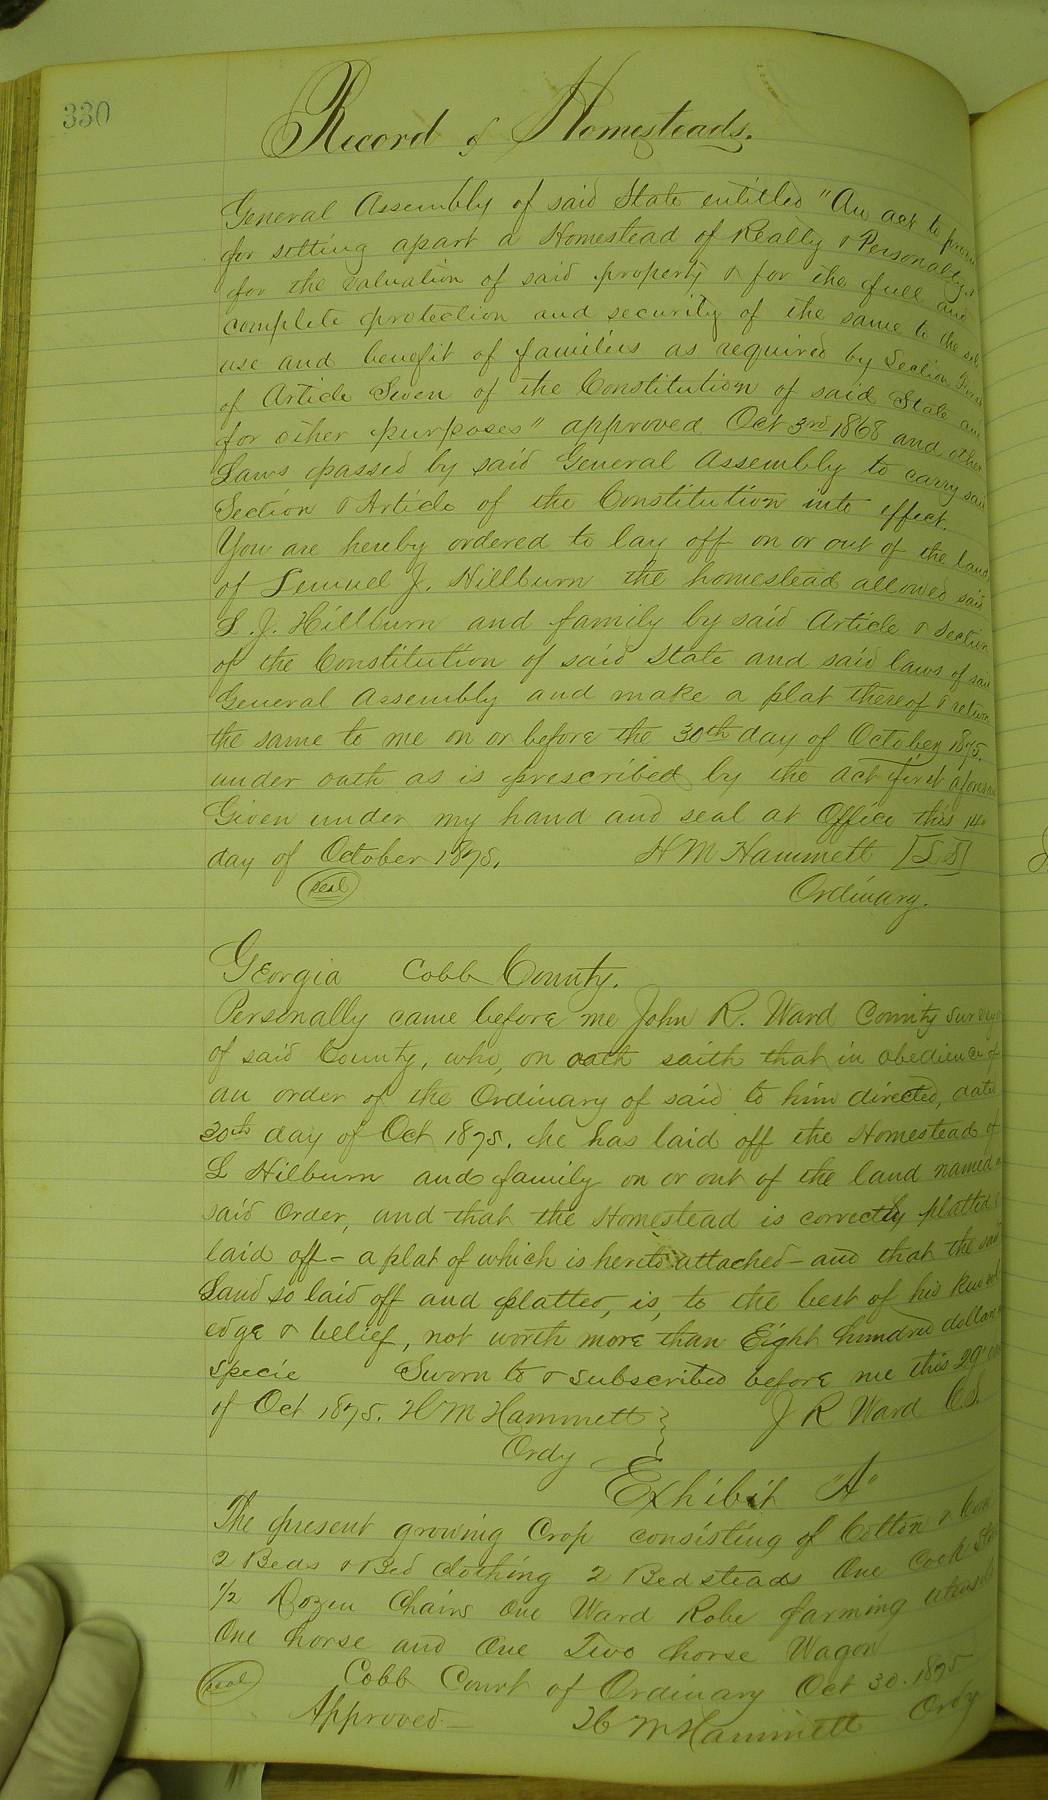 330
Record of Homesteads.
General Assembly of said State entitled "An act to
for setting apart a Homestead of Realty & Personalty &
for the valuation of said property & for the full and
complete protection and security of the same to the sole
use and benefit of families as required by Section
of Article Seven of the Constitution of said State and
for other purposes" approved Oct 3rd 1868 and other
Laws passed by said General Assembly to carry said
Section & Article of the Constitution into effect.
You are hereby ordered to lay off on or out of the land
of Lemuel J. Hillburn the homestead allowed said
L. J. Hillburn and family by said Article & Section
of the Constitution of said State and said laws of said
General Assembly and make a plat thereof & return
the same to me on or before the 30th day of October 1875.
under oath as is prescribed by the act first aforesaid
Given under my hand and seal at Office this 14th
day of October 1875. H M Hammett [L.S]
seal Ordinary.
Georgia Cobb County.
Personally came before me John R. Ward County Survey
of said County, who, on oath saith that in obedience of
an order of the Ordinary of said to him directed, dated
30th day of Oct 1875. he has laid off the Homestead of
L Hilburn and family on or out of the land named in
said Order, and that the Homestead is correctly platted &
laid off - a plat of which is hereto attached - and that the said
Land so laid off and platted, is, to the best of his knowl
edge & belief, not worth more than Eight hundred dollars in
specie Sworn to & subscribed before me this 29
of Oct 1875. H M Hammett } J R Ward C.S.
Ordy }
Exhibit "A"
The present growing Crop consisting of Cotton & Corn
2 Beds & Bed clothing 2 Bedsteads One Cook Stove
1/2 Dozen Chairs One Ward Robe farming utensils
One horse and One Two horse Wagon
seal Cobb Court of Ordinary Oct 30. 1875
Approved - H M Hammett Ordy